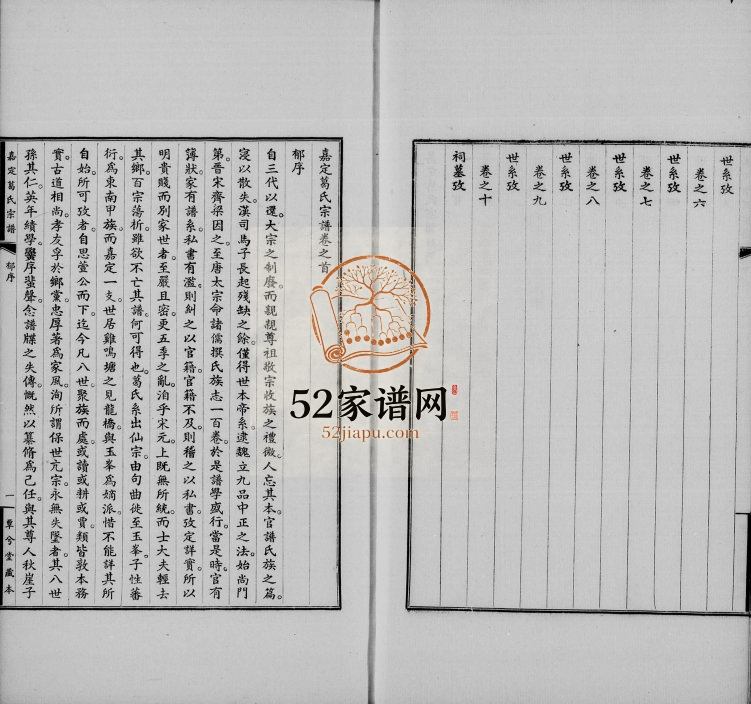 世系攷
卷之六
世系攷
卷之七
世系攷
卷之八
世系攷
卷之九
世系攷
卷之十
祠墓攷
嘉定葛氏宗譜卷之首
郁序
自三代以還大宗之制廢而親親尊祖敬宗收族之禮微人忘其本官譜氏族之篇
寖以散失漢司馬子長起殘缺之餘僅得世本帝系逮魏立九品中正之法始尚門
第晉宋齊梁因之至唐太宗命諸儒撰氏族志一百卷於是譜學盛行當是時官有
簿狀家有譜系私書有濫則糾之以官籍官籍不及則稽之以私書攷定詳實所以
明貴賤而別家世者至嚴且密更五季之亂洎乎宋元上既無所統而士大夫輕去
其鄉百宗蕩析雖欲不亡其譜何可得也葛氏系出仙宗由句曲徙至玉峯子姓蕃
衍為東南甲族而嘉定一支世居雞鳴塘之見龍橋與玉峯為嫡派惜不能詳其所
自始所可攷者自思萱公而下迄今凡八世聚族而處或讀或耕或賈類皆敦本務
實古道相尚孝友孚於鄉黨忠厚著為家風洵所謂保世亢宗永無失墜者其八世
孫其仁英年績學黌序蜚聲念譜牒之失傳慨然以纂脩為己任與其尊人秋崖子
嘉定葛氏宗譜
郁序
一
覃兮堂藏本
52家谱网
52jiapu.com